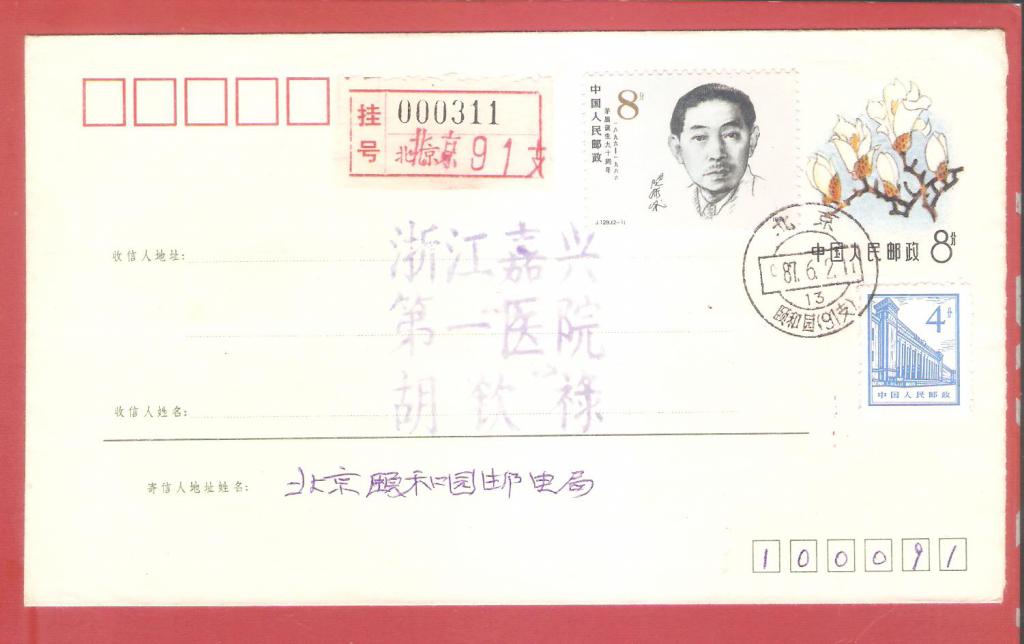 挂号
000311
北京 91支
中国人民邮政
8分
茅盾诞生九十周年
一八九六—一九八六
J.129.(2-1)
中国人民邮政 8分
北京
87.6.2.17
13
颐和园(91支)
4分
中国人民邮政
收信人地址:
浙江嘉兴
第一医院
收信人姓名:
胡钦禄
寄信人地址姓名: 北京颐和园邮电局
100091